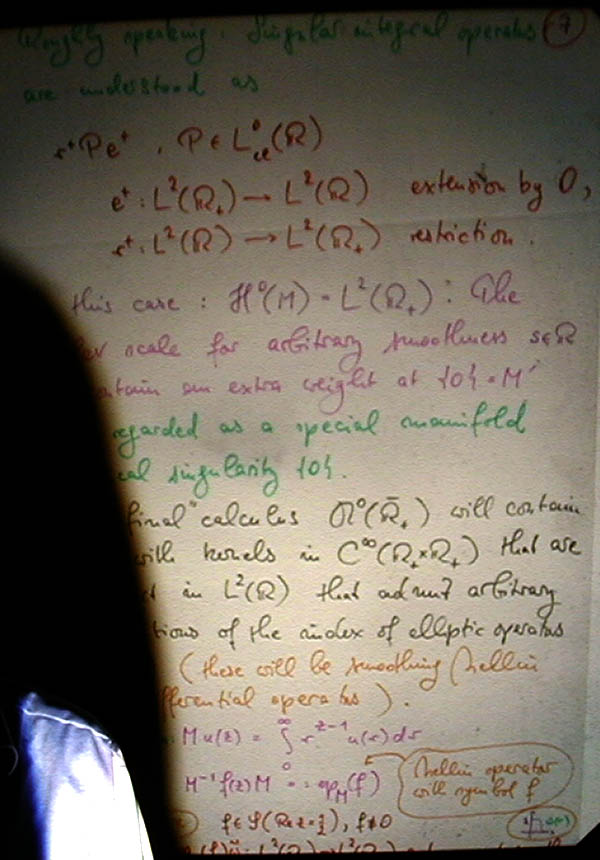 Roughly speaking. Singular integral operators 7
are understood as
r⁺Pe⁺, P ∈ L⁰cl(ℝ)
e⁺: L²(ℝ₊) → L²(ℝ) extension by 0,
r⁺: L²(ℝ) → L²(ℝ₊) restriction.
this case: H⁰(M) = L²(ℝ₊): The
scale for arbitrary smoothness s∈ℝ
an extra weight at {0} = M'
regarded as a special manifold
singularity {0}.
final" calculus (ℝ̄₊) will contain
with kernels in C^∞(ℝ₊×ℝ₊) that are
in L²(ℝ) that admit arbitrary
of the index of elliptic operators
(these will be smoothing Mellin
operators).
Mu(z) = ∫₀^∞ r^{z-1} u(r) dr
M⁻¹f(z)M =: op_M(f)
Mellin operator
with symbol f
f ∈ S(Re z = ½), f≠0